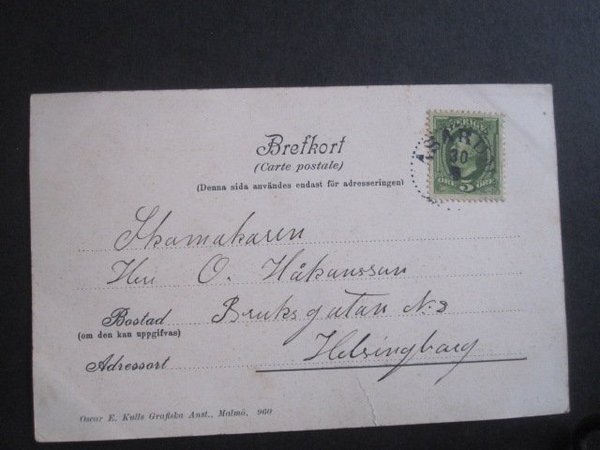 Brefkort
(Carte postale)
(Denna sida användes endast för adresseringen)
SVERIGE
30
5
ÖRE ÖRE
Skomakaren
Herr O. Håkansson
Bostad Bruksgatan N. 2
(om den kan uppgifvas)
Helsingborg
Adressort
Oscar E. Kulls Grafiska Anst., Malmö, 960